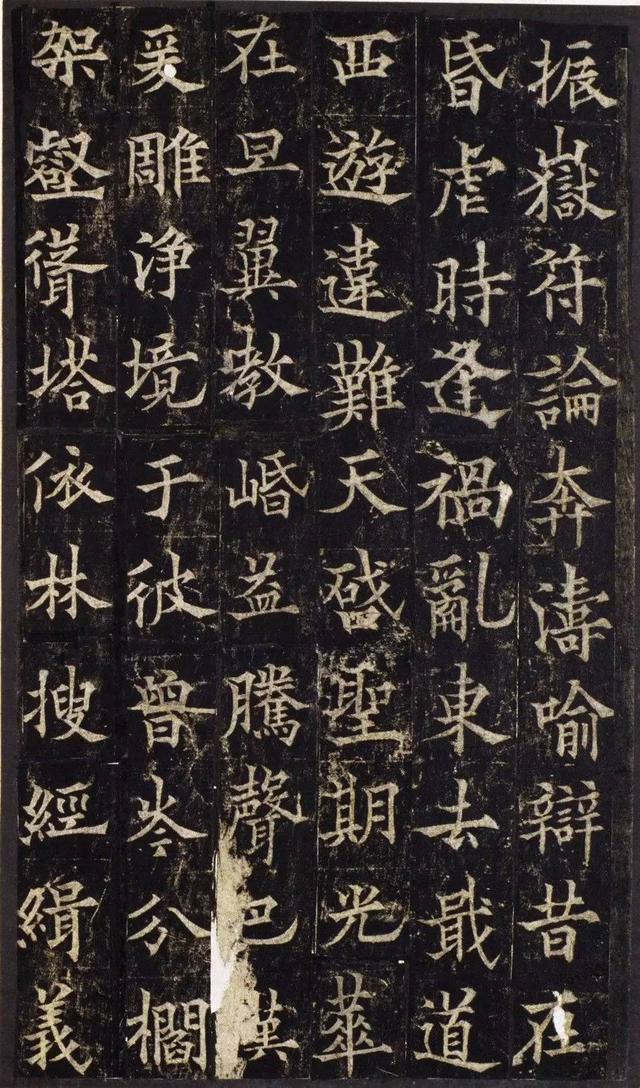 振嶽符論奔濤喻辯昔在
昏虐時逢禍亂東去戢道
西遊違難天啓聖期光華
在旦翼教岷益騰聲巴漢
爰雕淨境于彼曾岑分櫚
架壑聳塔依林搜經緝義